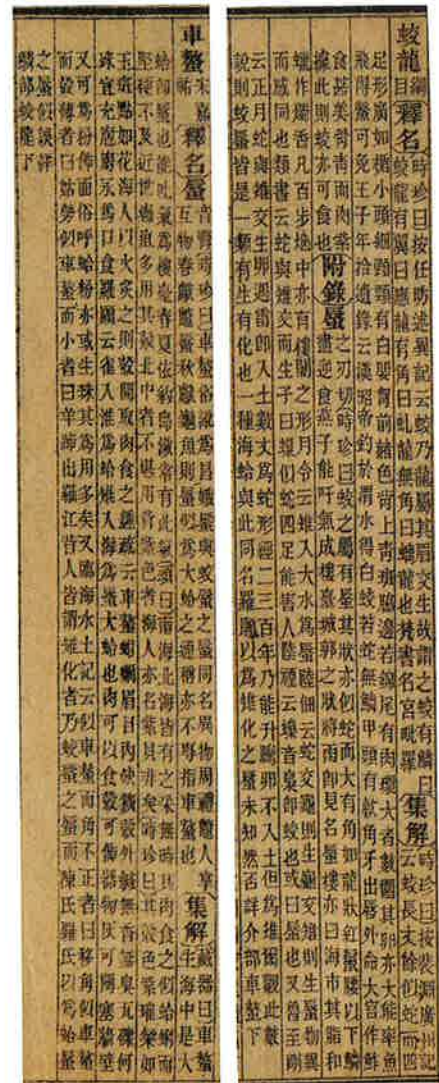 蛟龍綱目〔釋名〕時珍曰按任昉述異記云蛟乃龍屬其眉交生故謂之蛟有鱗曰
蛟龍有翼曰應龍有角曰虬龍無角曰螭龍也梵書名宮毗羅〔集解〕時珍曰按裴淵廣州記
云蛟長丈餘似蛇而四
足形廣如楯小頭細頸頸有白嬰胸前赭色背上青斑脇邊若錦尾有肉環大者數圍其卵亦大能率魚
飛得鱉可免王子年拾遺錄云漢昭帝釣於渭水得白蛟若蛇無鱗甲頭有軟角牙出唇外命大官作鮓
食甚美骨青而肉紫
據此則蛟亦可食也〔附錄〕蜃之刃切時珍曰蛟之屬有蜃其狀亦似蛇而大有角如龍狀紅鬣腰以下鱗
盡逆食燕子能吁氣成樓臺城郭之狀將雨即見名蜃樓亦曰海市其脂和
蠟作燭香凡百步煙中亦有樓閣之形月令云雉入大水為蜃陸佃云蛇交龜則生龜交雉則生蜃物異
而感同也類書云蛇與雉交而生子曰蟂似蛇四足能害人陸禋云蟂音梟即蛟也或曰蜃也又魯至剛
云正月蛇與雉交生卵遇雷即入土數丈為蛇形經二三百年乃能升騰卵不入土但為雉爾觀此數
說則蛟蜃皆是一類有生有化也一種海蛤與此同名羅願以為雉化之蜃未知然否詳介部車螯下
車螯宋嘉祐〔釋名〕蜃音腎時珍曰車螯俗訛為昌娥蜃與蛟蜃之蜃同名異物周禮鱉人掌
互物春獻鱉蜃秋獻龜魚則蜃似為大蛤之通稱亦不專指車螯也〔集解〕藏器曰車螯
生海中是大
蛤即蜃也能吐氣為樓臺春夏依約島漵常有此氣頌曰南海北海皆有之采無時其肉食之似蛤蜊而
堅硬不及近世癰疽多用其殼北中者不堪用背紫色者海人亦名紫貝非矣時珍曰其殼色紫璀粲如
玉斑點如花海人以火炙之則殼開取肉食之鍾岏云車螯蚶蠣眉目內缺獷殼外緘無香無臭瓦礫何
殊宜充庖廚永為口食羅願云雀入淮為蛤雉入海為蜃大蛤也肉可以食殼可飾器物灰可闉塞牆壁
又可為粉飾面俗呼蛤粉亦或生珠其為用多矣又臨海水土記云似車螯而角不正者曰移角似車螯
而殼薄者曰姑勞似車螯而小者曰羊蹄出羅江昔人皆謂雉化者乃蛟蜃之蜃而陳氏羅氏以為蛤蜃
之蜃似誤詳
鱗部蛟龍下